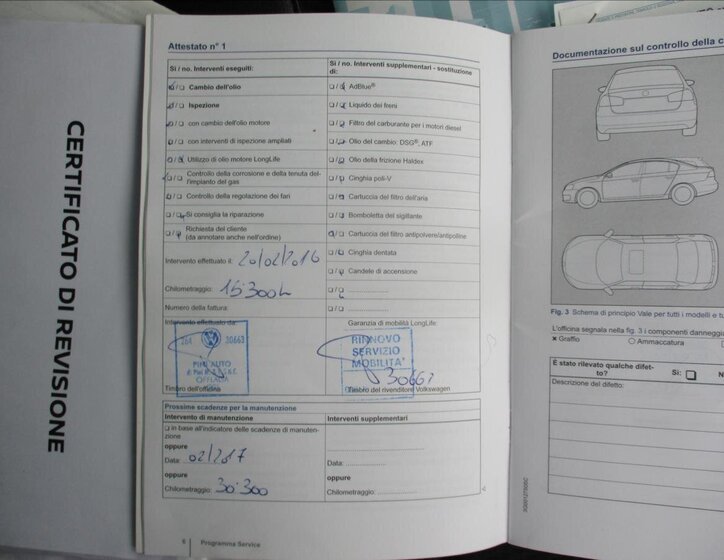 CERTIFICATO DI REVISIONE
Attestato n° 1
Si / no. Interventi eseguiti:
Si / no. Interventi supplementari - sostituzione di:
Cambio dell'olio
AdBlue®
Ispezione
Liquido dei freni
con cambio dell'olio motore
Filtro del carburante per i motori diesel
con interventi di ispezione ampliati
Olio del cambio: DSG®, ATF
Utilizzo di olio motore LongLife
Olio della frizione Haldex
Controllo della corrosione e della tenuta dell'impianto del gas
Cinghia poli-V
Controllo della regolazione dei fari
Cartuccia del filtro dell'aria
Si consiglia la riparazione
Bomboletta del sigillante
Richiesta del cliente
(da annotare anche nell'ordine)
Cartuccia del filtro antipolvere/antipolline
Cinghia dentata
Intervento effettuato il: 20/02/2016
Candele di accensione
Chilometraggio: 15.300
Numero della fattura:
Intervento effettuato da:
Garanzia di mobilità LongLife:
284 30663
PINI AUTO
OFFLAGA
RINNOVO
SERVIZIO
MOBILITA'
30663
Timbro dell'officina
Timbro del rivenditore Volkswagen
Prossime scadenze per la manutenzione
Intervento di manutenzione
Interventi supplementari
in base all'indicatore delle scadenze di manutenzione
oppure
Data: 02/2017
Data:
oppure
oppure
Chilometraggio: 30.300
Chilometraggio:
6 Programma Service
Documentazione sul controllo della c
Fig. 3 Schema di principio Vale per tutti i modelli e tu
L'officina segnala nella fig. 3 i componenti danneggi
Graffio
Ammaccatura
È stato rilevato qualche difetto?
Si:
N
Descrizione del difetto: